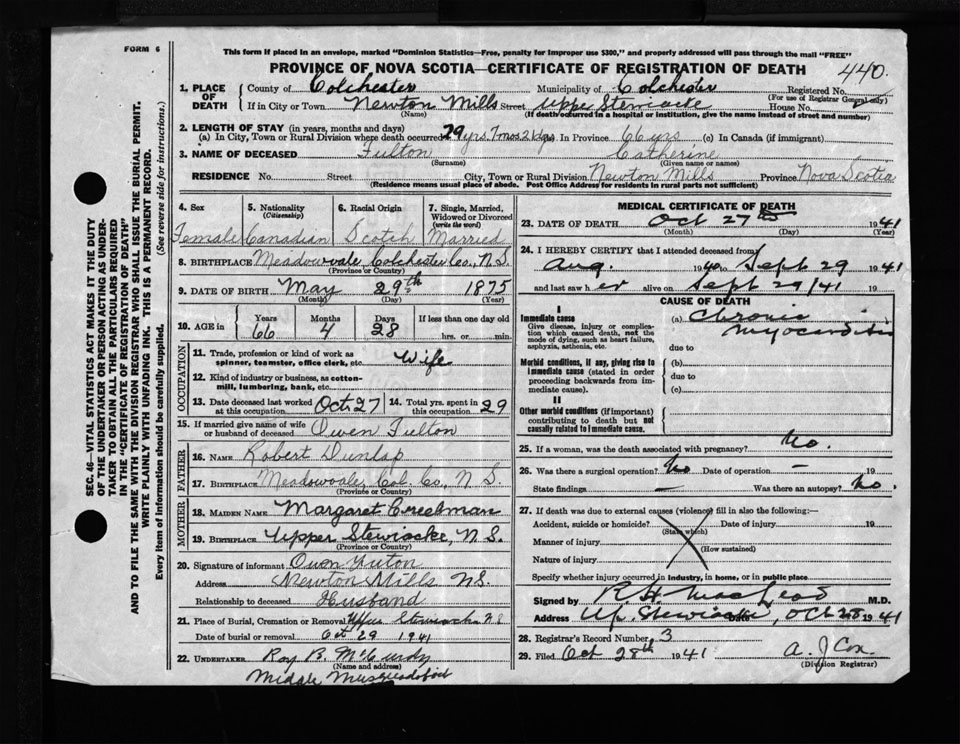 FORM 6
This form if placed in an envelope, marked "Dominion Statistics—Free, penalty for improper use $300," and properly addressed will pass through the mail "FREE"
PROVINCE OF NOVA SCOTIA—CERTIFICATE OF REGISTRATION OF DEATH 440.
1. PLACE OF DEATH
County of Colchester Municipality of Colchester Registered No.
(For use of Registrar General only)
If in City or Town Newton Mills Street Upper Stewiacke House No.
(Name) (If death occurred in a hospital or institution, give the name instead of street and number)
2. LENGTH OF STAY (in years, months and days)
(a) In City, Town or Rural Division where death occurred 29 yrs. 7 mos. 2 dys. In Province 66 yrs (c) In Canada (if immigrant)
3. NAME OF DECEASED Fulton Catherine
(Surname) (Given name or names)
RESIDENCE No. Street City, Town or Rural Division Newton Mills Province Nova Scotia
(Residence means usual place of abode. Post Office Address for residents in rural parts not sufficient)
4. Sex 5. Nationality (Citizenship) 6. Racial Origin 7. Single, Married, Widowed or Divorced (write the word)
Female Canadian Scotch Married
8. BIRTHPLACE Meadowvale, Colchester Co., N.S.
(Province or Country)
9. DATE OF BIRTH May 29th 1875
(Month) (Day) (Year)
10. AGE in Years Months Days If less than one day old
66 4 28 hrs. or min.
OCCUPATION
11. Trade, profession or kind of work as spinner, teamster, office clerk, etc. Wife
12. Kind of industry or business, as cotton-mill, lumbering, bank, etc.
13. Date deceased last worked at this occupation Oct. 27 14. Total yrs. spent in this occupation 29
15. If married give name of wife or husband of deceased Owen Fulton
FATHER
16. NAME Robert Dunlap
17. BIRTHPLACE Meadowvale, Col. Co., N S.
(Province or Country)
MOTHER
18. MAIDEN NAME Margaret Creelman
19. BIRTHPLACE Upper Stewiacke, N.S.
(Province or Country)
20. Signature of informant Owen Fulton
Address Newton Mills NS.
Relationship to deceased Husband
21. Place of Burial, Cremation or Removal Upper Stewiacke N.S
Date of burial or removal Oct 29 1941
22. UNDERTAKER Roy B. McCurdy
(Name and address)
Middle Musquodoboit
MEDICAL CERTIFICATE OF DEATH
23. DATE OF DEATH Oct 27th 1941
(Month) (Day) (Year)
24. I HEREBY CERTIFY that I attended deceased from
Aug. 1940 to Sept 29 1941
and last saw her alive on Sept 29/41 19
CAUSE OF DEATH
I
Immediate cause (a) Chronic myocarditis
Give disease, injury or complication which caused death, not the mode of dying, such as heart failure, asphyxia, asthenia, etc.
due to
Morbid conditions, if any, giving rise to immediate cause (stated in order proceeding backwards from immediate cause).
(b)
due to
(c)
II
Other morbid conditions (if important) contributing to death but not causally related to immediate cause.
25. If a woman, was the death associated with pregnancy? No.
26. Was there a surgical operation? No Date of operation — 19
State findings — Was there an autopsy? No.
27. If death was due to external causes (violence) fill in also the following:—
Accident, suicide or homicide? Date of injury 19
(State which)
Manner of injury
(How sustained)
Nature of injury
Specify whether injury occurred in industry, in home, or in public place
Signed by R H MacLeod M.D.
Address Up. Stewiacke, Date Oct 28 1941
28. Registrar's Record Number 3
29. Filed Oct 28th 1941 A. J Cox
(Division Registrar)
SEC. 46—VITAL STATISTICS ACT MAKES IT THE DUTY
OF THE UNDERTAKER OR PERSON ACTING AS UNDER-
TAKER TO OBTAIN ALL THE PARTICULARS REQUIRED
IN THE "CERTIFICATE OF REGISTRATION OF DEATH"
AND TO FILE THE SAME WITH THE DIVISION REGISTRAR WHO SHALL ISSUE THE BURIAL PERMIT.
WRITE PLAINLY WITH UNFADING INK. THIS IS A PERMANENT RECORD.
Every item of information should be carefully supplied. (See reverse side for instructions.)